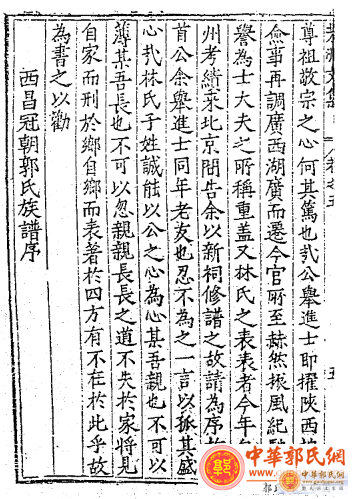 尊祖敬宗之心何其篤也㢤公舉進士即擢陝西按
僉事再調廣西湖廣而遷今官所至赫然振風紀
譽為士大夫之所稱重盖又林氏之表表者今年自
州考績来北京間告余以新祠修譜之故請為序
首公余舉進士同年老友也忍不為之一言以孤其盛
心㢤林氏子姓誠能以公之心為心某吾親也不可以
薄某吾長也不可以忽親親長長之道不失於家將見
自家而刑於鄉自鄉而表著於四方有不在於此乎故
為書之以勸
西昌冠朝郭氏族譜序
卷之五
五
郭
中華郭氏網